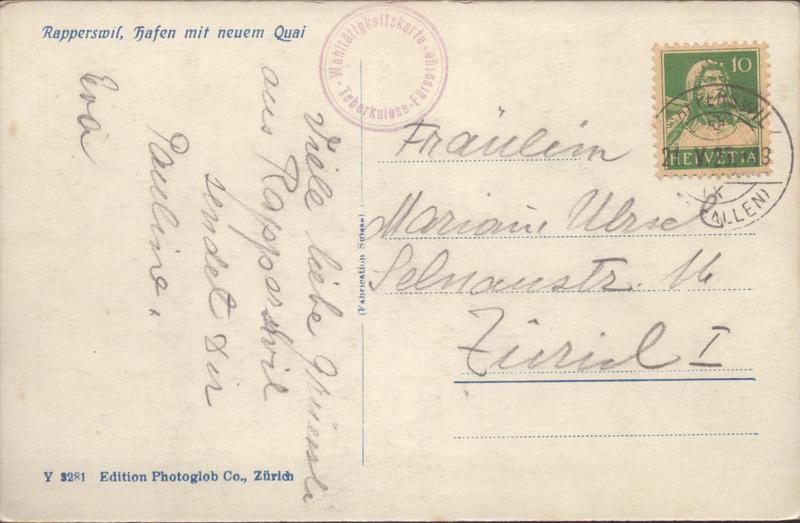 Rapperswil, Hafen mit neuem Quai
Wohltätigkeitskarte
Tuberkulose-Fürsorge
10
HELVETIA
RAPPERSWIL
(ST. GALLEN)
Viele liebe Grüessli
aus Rapperswil
sendet Dir
Pauline.
Eva
Fräulein
Mariane Ulrich
Selnaustr. 16
Zürich I
(Fabrication Suisse)
Y 3281 Edition Photoglob Co., Zürich